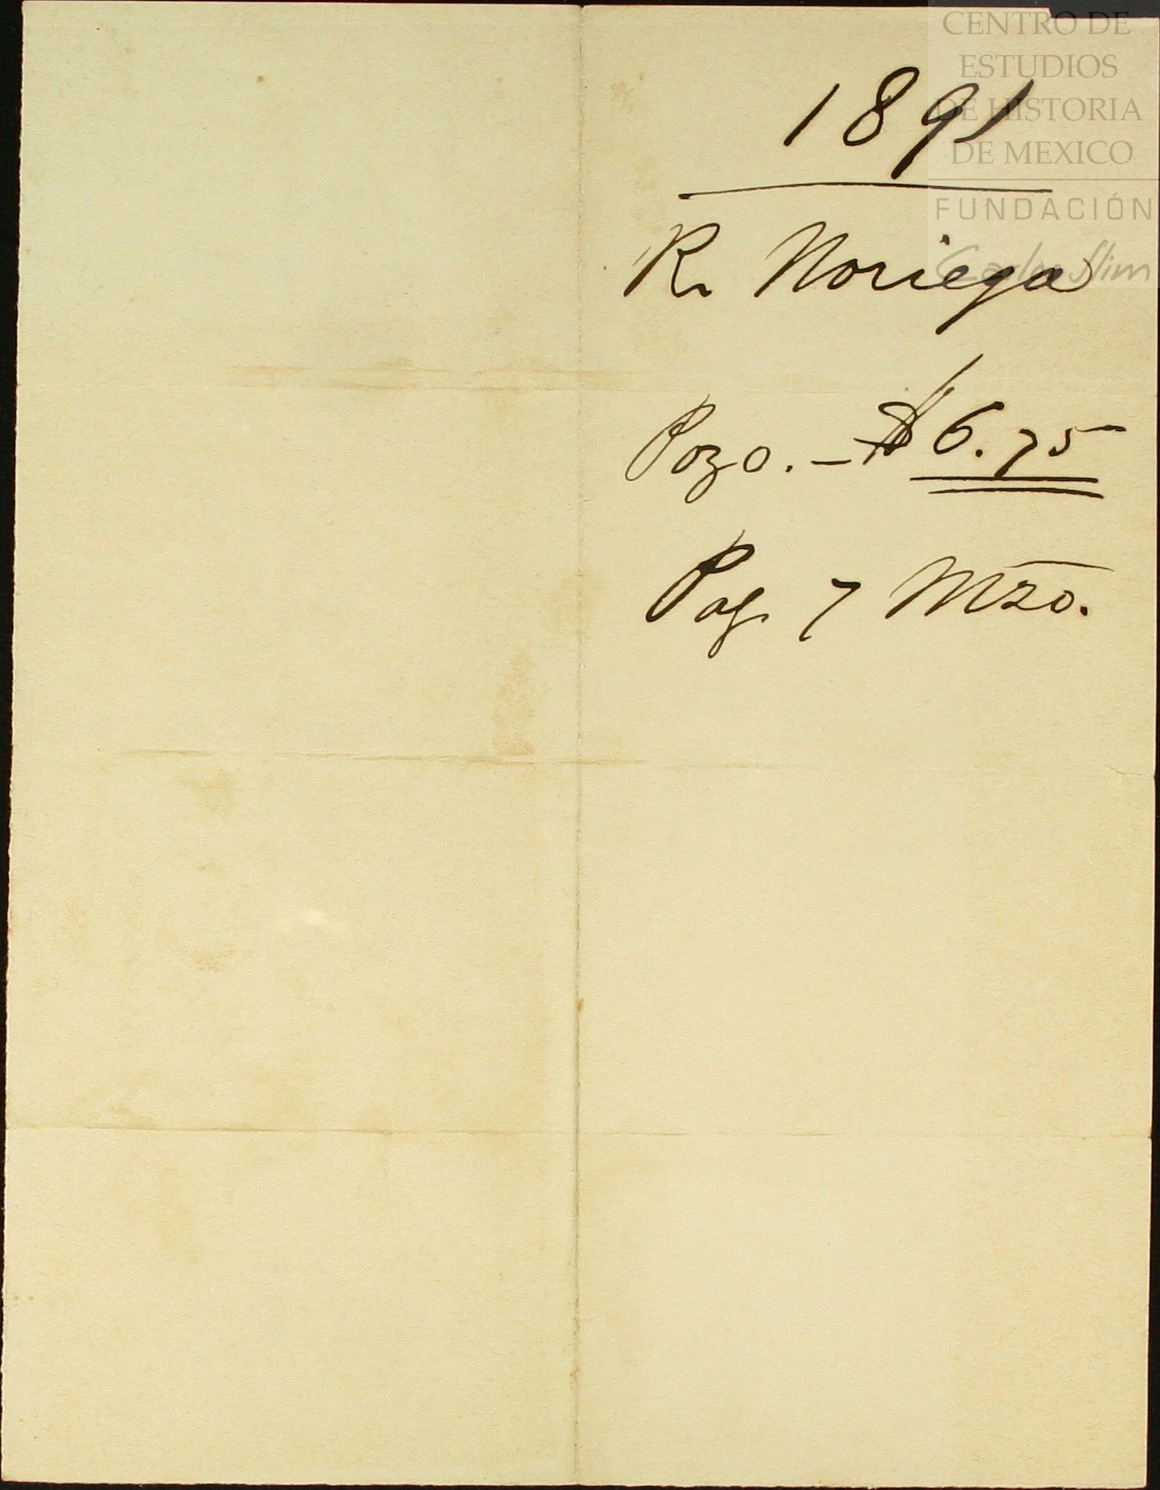 CENTRO DE
ESTUDIOS
DE HISTORIA
DE MEXICO
FUNDACIÓN
Carlos Slim
1891
R. Noriega
Pozo. - $6.75
Pag. 7 Mzo.